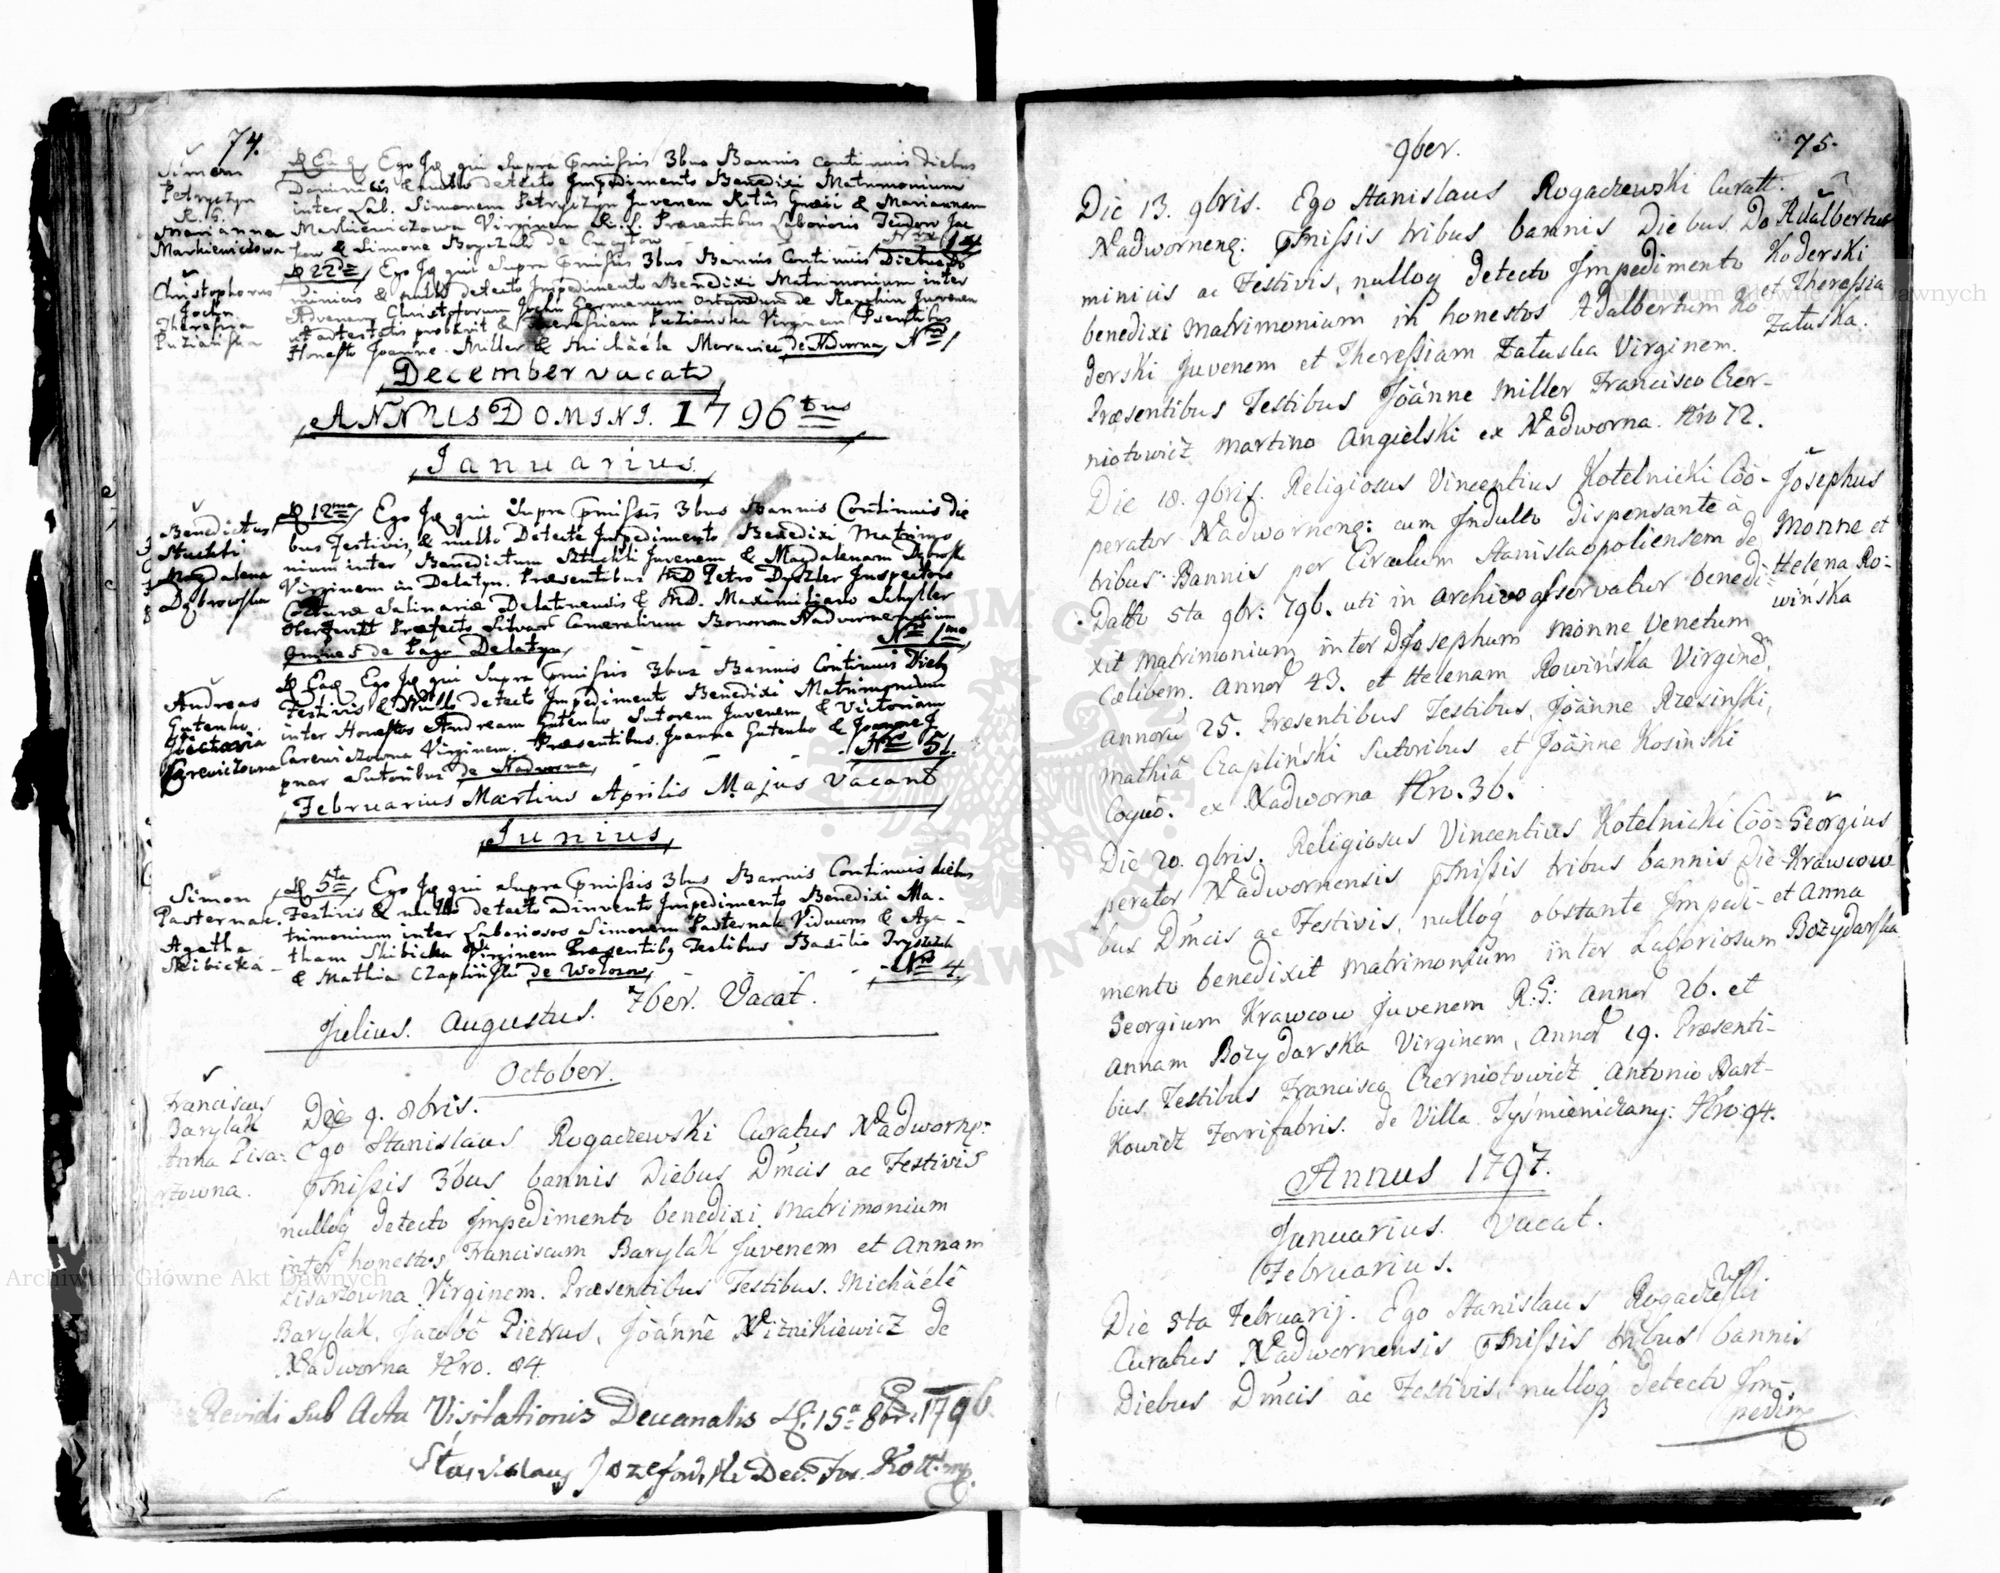 74.
Simon
Petryczyn
R. G.
Marianna
Markiewiczowa
Ego Jq qui Supra pmissis 3bus Bannis continuis diebus
Dominicis & nullo detecto Impedimento Benedixi Matrimonium
inter Lab. Simonem Petryczyn Juvenem Ritûs Græci & Mariannam
Markiewiczowa Virginem R. L. Præsentibus Laboriosis
& Simone
Christophorus
Jochn
Theressia
Puzianska
22da Ego Jq qui Supra pmissis 3bus Bannis Continuis Diebus Do
minicis & nullo detecto Impedimento Benedixi Matrimonium inter
Advenam Christoforum Jochn Germanum Juvenem
& Theressiam Puzianska Virginem
Honesto Joanne Miller & Michaele de Nadworna
December vacat
ANNUS DOMINI. 1796tus
Januarius
Benedictus
Magdalena
Dąbrowska
12ma Ego Jq qui Supra pmissis 3bus Bannis Continuis die
bus Festivis, & nullo Detecto Impedimento Benedixi Matrimo
nium inter Benedictum Juvenem & Magdalenam
Virginem in Delatyn. Præsentibus Petro Inspectore
Cocturæ Salinariæ Delatinensis & MD. Maximiliano
Præfecto Silvar Cameralium Bonorum Nadvornensium
Omnes de Pago Delatyn. Nro 1mo
Andreas
Gutenko
Victoria
Carewiczowna
Ead Ego Jq qui Supra pmissis 3bus Bannis Continuis Dieb
Festivis & Nullo detecto Impedimento Benedixi Matrimonium
inter Honestos Andream Gutenko Sutorem Juvenem & Victoriam
Carewiczowna Virginem. Præsentibus Joanne Gutenko & Joanne
Sutoribus de Nadworna. Nro 51.
Februarius Martius Aprilis Majus Vacant
Junius
Simon
Pasternak.
Agatha
Skibicka
5ta Ego Jq qui Supra pmissis 3bus Bannis Continuis diebus
Festivis & nullo detecto adinvento Impedimento Benedixi Ma-
trimonium inter Laboriosos Simonem Pasternak Viduum & Aga-
tham Skibicka Virginem Præsentibq Testibus Basilio
& Mathia Czaplinski de Nro 4.
Julius. Augustus. 7ber. Vacat.
October.
Franciscus
Barylak
Anna Pisa-
rzowna.
Die 9. 8bris.
Ego Stanislaus Rogaczewski Curatus Nadworne:
pmissis 3bus bannis Diebus Dmcis ac Festivis
nulloq detecto Impedimento benedixi Matrimonium
inter honestos Franciscum Barylak Juvenem et Annam
Pisarzowna Virginem. Præsentibus Testibus. Michäelê
Barylak, Jacobô Pietrus, Jöánnê Niznikiewicz de
Nadworna Nro. 84.
Revidi sub Acta Visitationis Decanalis d. 15a 8bris 1796
Stanislaus Jozefowski Dec.
9ber. 75.
Die 13. 9bris. Ego Stanislaus Rogaczewski Curatt.
Nadworneng: pmissis tribus bannis Diebus Do
minicis ac Festivis, nulloq detecto Impedimento
benedixi Matrimonium in honestos Adalbertum Ko
derski Juvenem et Theressiam Zatuska Virginem.
Præsentibus Testibus Jöánne Miller Francisco Czer-
niotowicz Martino Angielski ex Nadworna. Nro 72.
Adalbertus
Koderski
et Theressia
Zatuska.
Die 18. 9bris. Religiosus Vincentius Kotelnicki Cöo-
perator Nadworneng: cum Indulto dispensante à
tribus Bannis per Circulum Stanislaopoliensem de
Datto 5ta 9br: 796. uti in archivo asservatur benedi-
xit Matrimonium inter D Josephum Monne Venetum
Cælibem. Annor 43. et Helenam Rowińska Virginem,
Annorũ 25. Præsentibus Testibus, Jöànne Rzesinski,
Mathiâ Czapliński Sutoribus et Jöànne Kosinski
Coquô. ex Nadworna Nro. 36.
Josephus
Monne et
Helena Ro-
wińska
Die 20. 9bris. Religiosus Vincentius Kotelnicki Cöo-
perator Nadwornensis pmissis tribus bannis Die-
bus Dmcis ac Festivis, nulloq obstante Impedi-
mento benedixit Matrimonium inter Laboriosum
Georgium Krawcow Juvenem R: G: Annor 26. et
Annam Bozydarska Virginem, Annor 19. Præsenti-
bus Testibus Francisco Czerniotowicz Antonio Bart-
kowicz Ferrifabris. de Villa Tyśmieniczany: Nro: 94.
Georgius
Krawcow
et Anna
Bozydarska
Annus 1797.
Januarius. Vacat.
Februarius.
Die 5ta Februarij. Ego Stanislaus Rogaczewski
Curatus Nadwornensis pmissis tribus bannis
Diebus Dmcis ac Festivis, nulloq detecto Im-
pedim
Archiwum Główne Akt Dawnych
Archiwum Główne Akt Dawnych